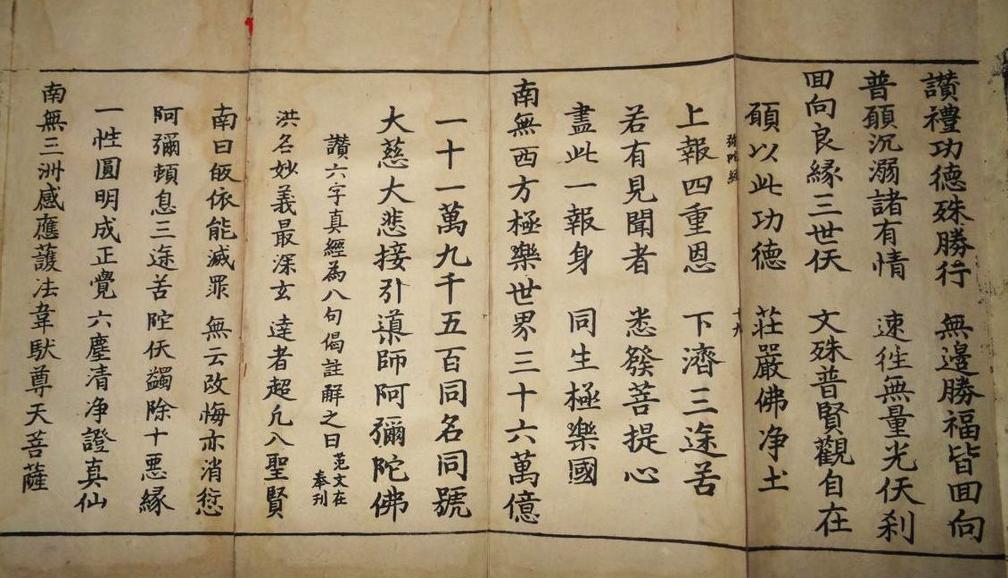 讚禮功德殊勝行 無邊勝福皆囬向
普願沉溺諸有情 速徃無量光仸刹
囬向良緣三世仸 文殊普賢觀自在
弥陀經 十九
願以此功德 莊嚴佛净土
上報四重恩 下濟三途苦
若有見聞者 悉發菩提心
盡此一報身 同生極樂國
南無西方極樂世界三十六萬億
一十一萬九千五百同名同號
大慈大悲接引導師阿彌陀佛
讚六字真經為八句偈註解之曰 范文在奉刊
洪名妙義最深玄 達者超凢入聖賢
南曰皈依能滅罪 無云改悔亦消愆
阿彌頓息三途苦 陀仸蠲除十惡緣
一性圓明成正覺 六塵清净證真仙
南無三洲感應護法韋馱尊天菩薩